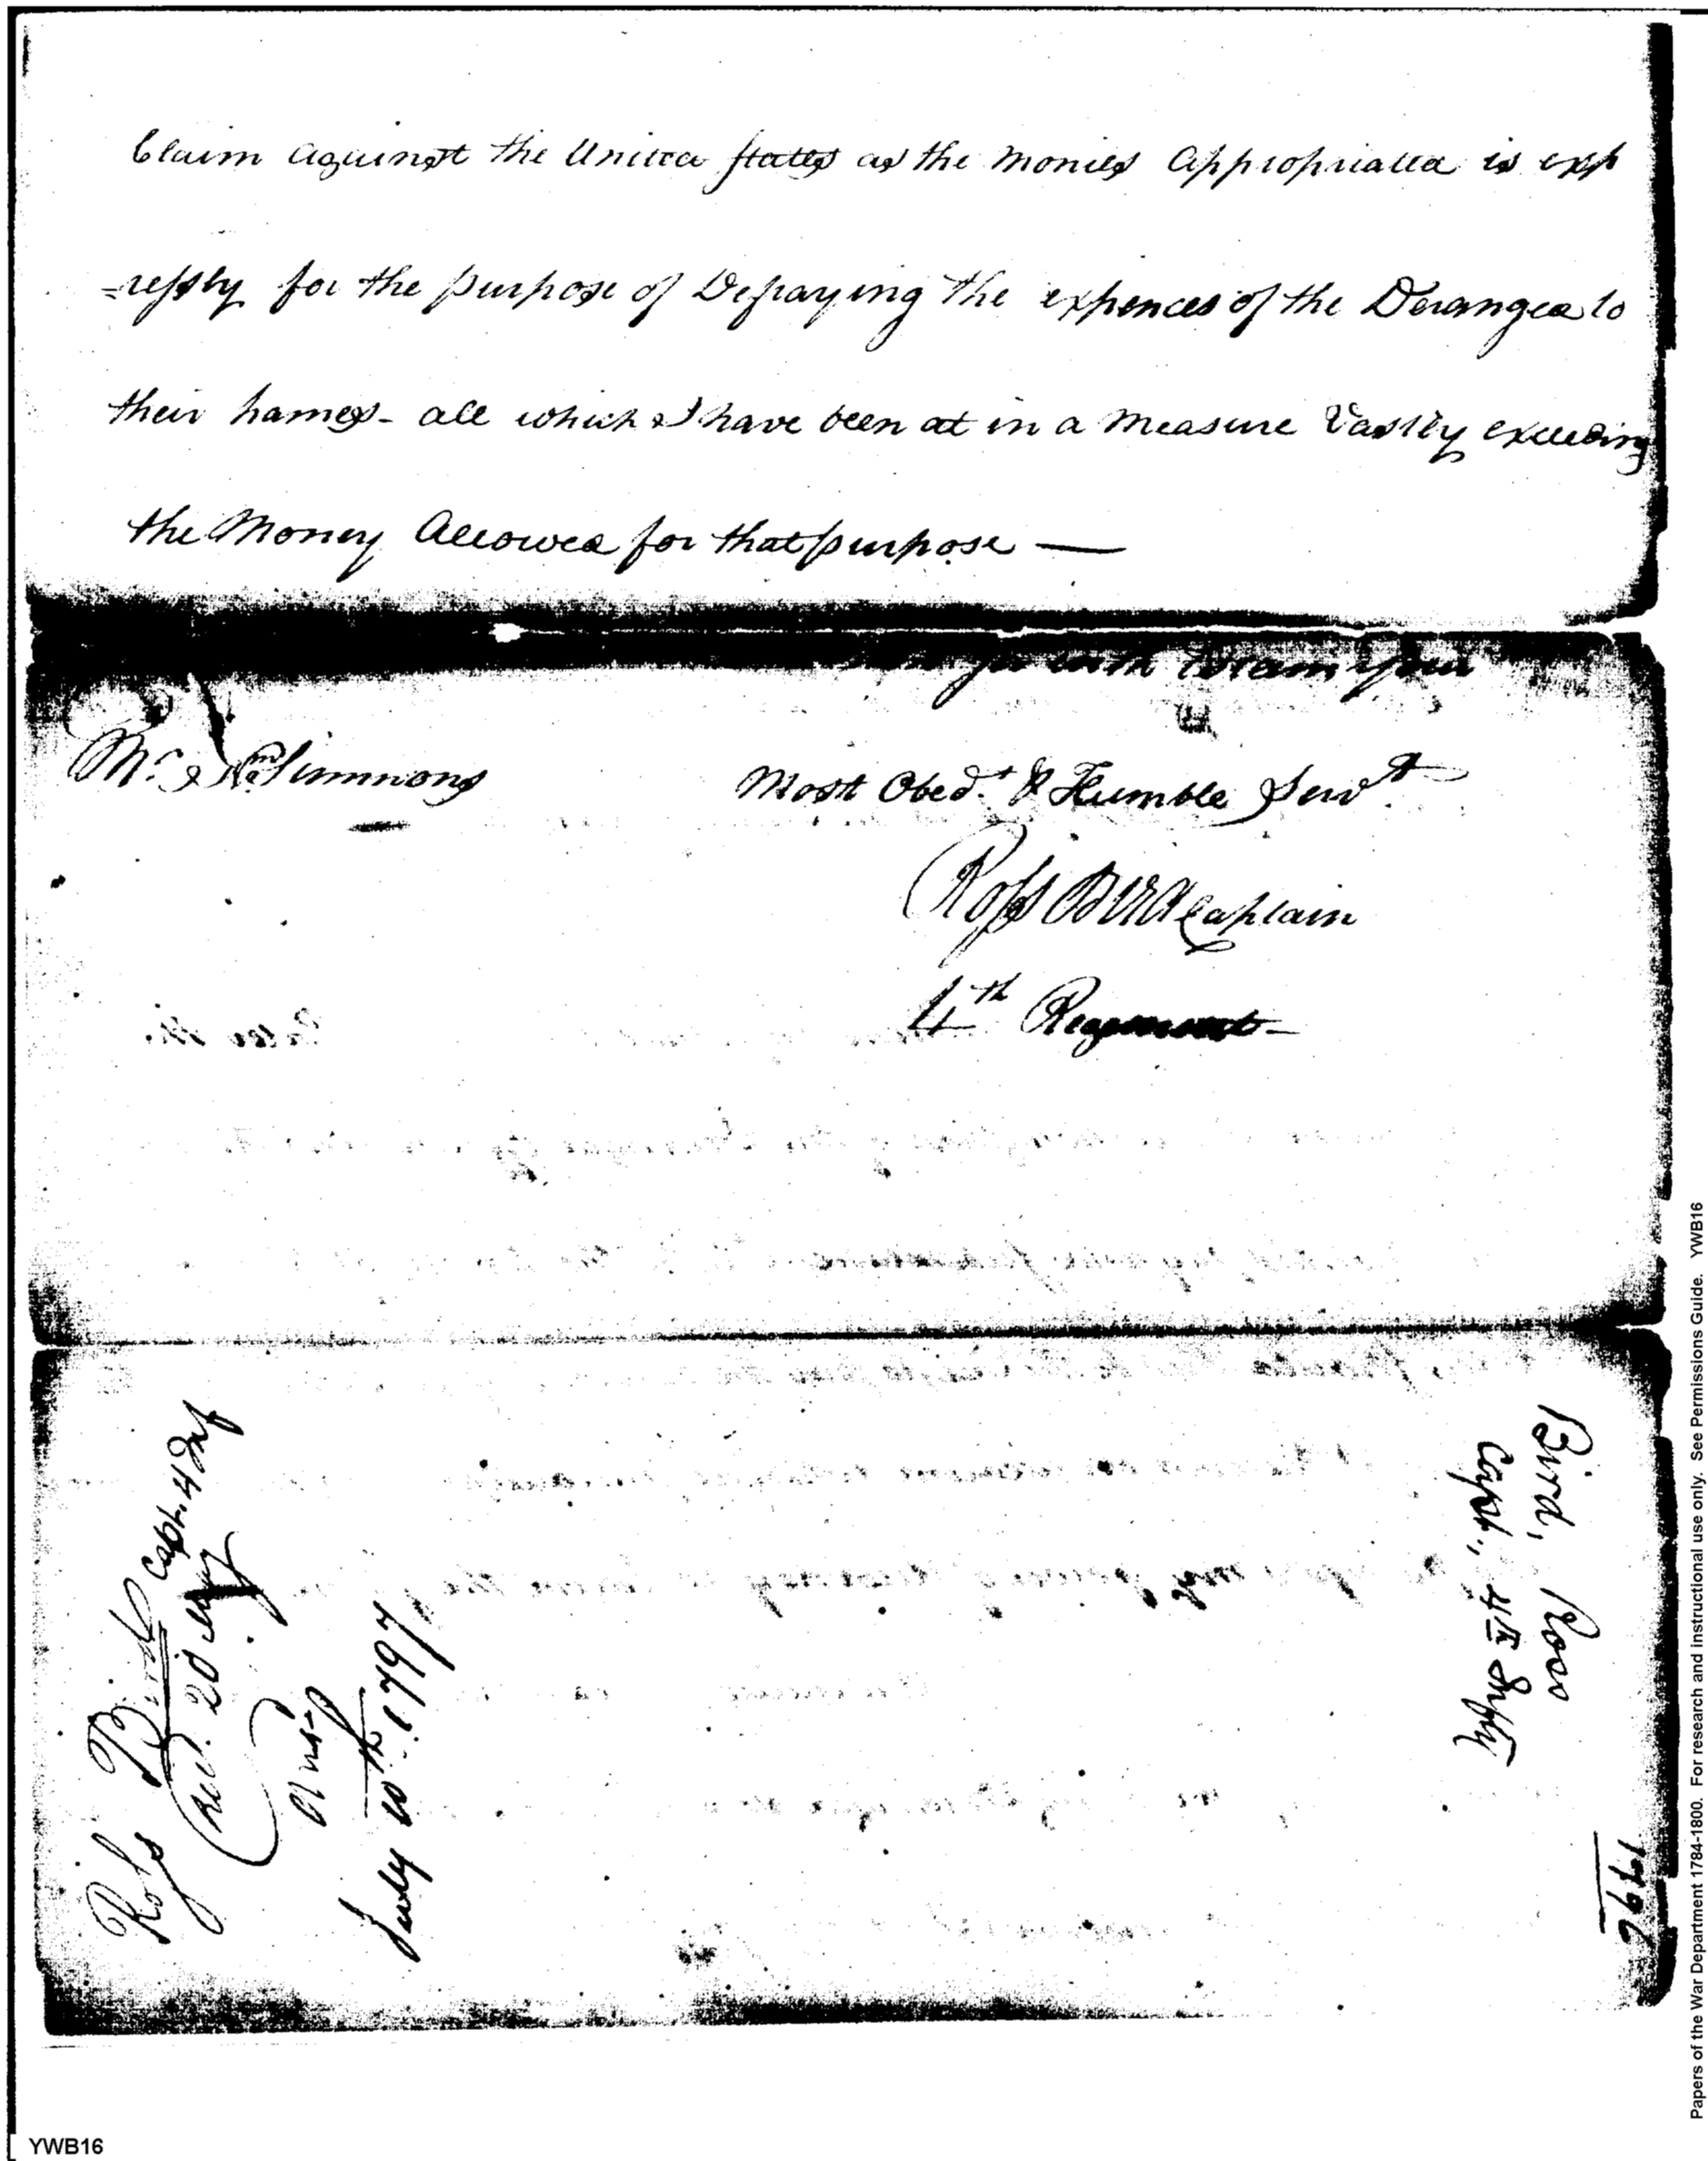 Claim against the United States as the monies Appropriated is exp
=ressly for the purpose of Defraying the expences of the Deranged to
their homes - all which I have been at in a measure Vastly exceeding
the Money Allowed for that purpose —
with Esteem your
Mr. Wm Simmons
Most Obedt. & Humble Servt
Ross Bird Captain
4th Regiment
Ross Bird Capt. 4 Inf
Recd. 20 May
Ansd
July 10th. 1797
Bird, Ross
Capt., 4th Infty
1796
Papers of the War Department 1784-1800. For research and instructional use only. See Permissions Guide. YWB16
YWB16